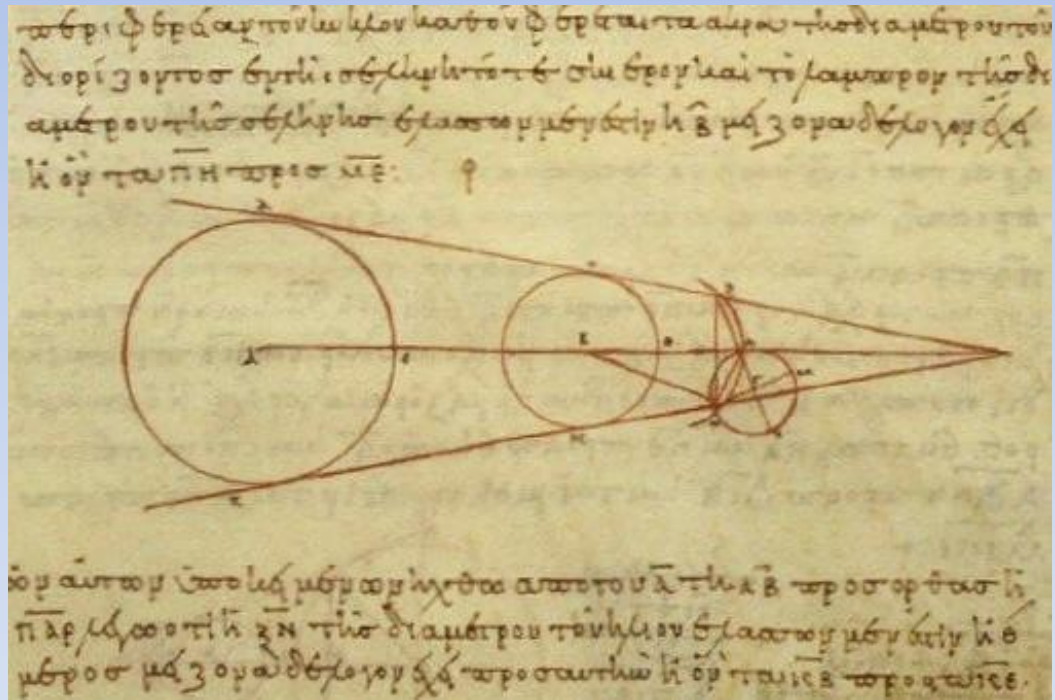 φέρεται τὰ ἄκρα τῆς διαμέτρου τοῦ
διορίζοντος ἐν τῇ σελήνῃ τό τε σκιερὸν καὶ τὸ λαμπρὸν τῆς δι
αμέτρου τῆς σελήνης ἐλάσσων μέν ἐστιν ἢ β̄ μείζονα δὲ λόγον ἔχει
ἢ ὃν τὰ π̅η̅ πρὸς μ̅ε̅:
αὐτῶν ὑποκειμένων ἤχθω ἀπὸ τοῦ α̅ τῇ α̅β̅ πρὸς ὀρθὰς ἡ
π̅α̅ρ̅ λέγω ὅτι ἡ ξ̅ν̅ τῆς διαμέτρου τοῦ ἡλίου ἐλάσσων μέν ἐστιν ἢ θ
μέρος μείζονα δὲ λόγον ἔχει πρὸς αὐτὴν ἢ ὃν τὰ κ̅β̅ πρὸς τὰ σ̅κ̅ε̅.